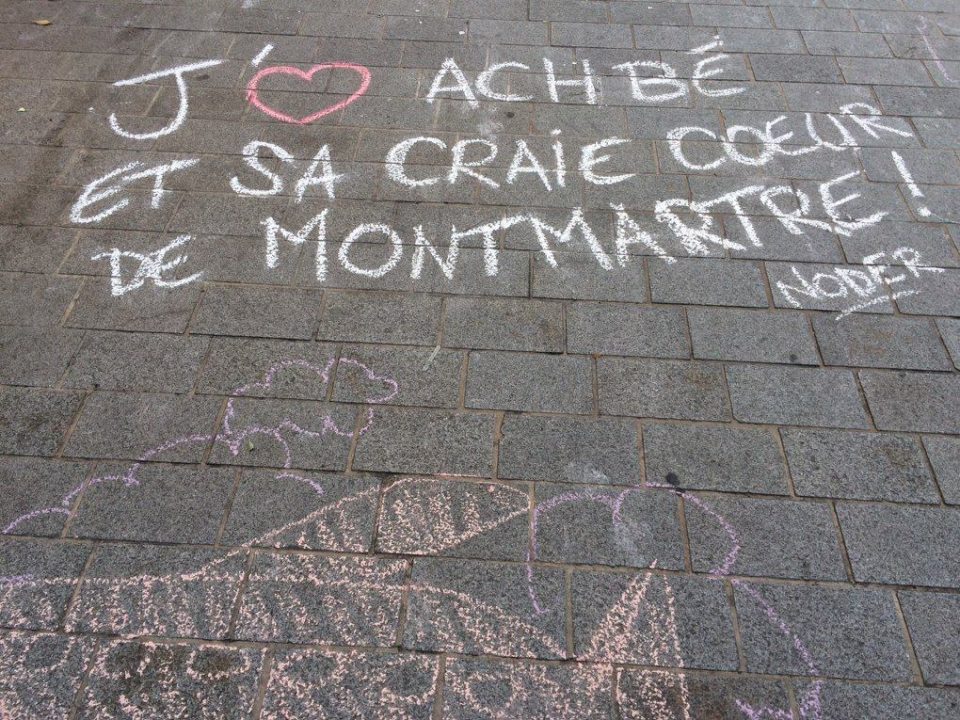 J'♡ ACHBÉ
ET SA CRAIE COEUR
DE MONTMARTRE!
NODER